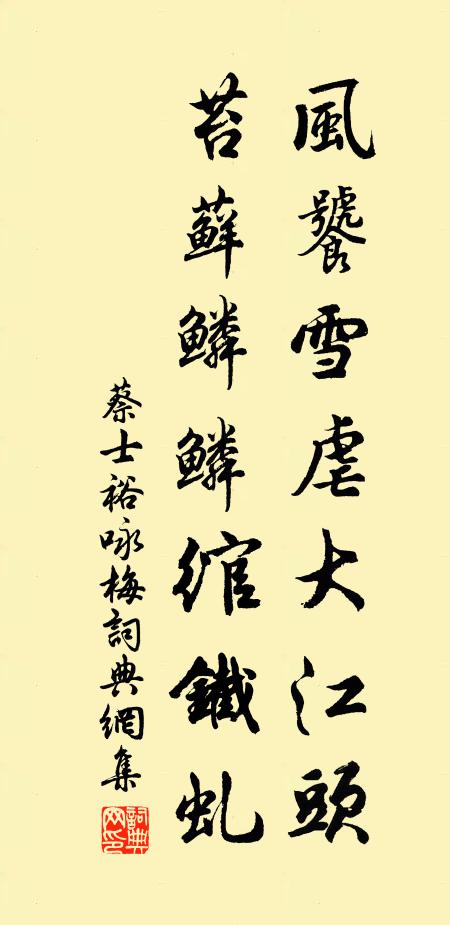 風饕雪虐大江頭
苔蘚鱗鱗綰鐵虬
蔡士裕咏梅詞典網集
詞典網印